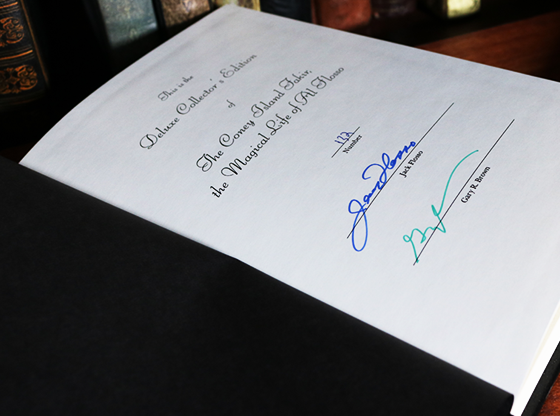 This is the
Deluxe Collector's Edition
of
The Coney Island Fakir,
the Magical Life of Al Flosso
Number
Jack Flosso
Jack Flosso
Gary R. Brown